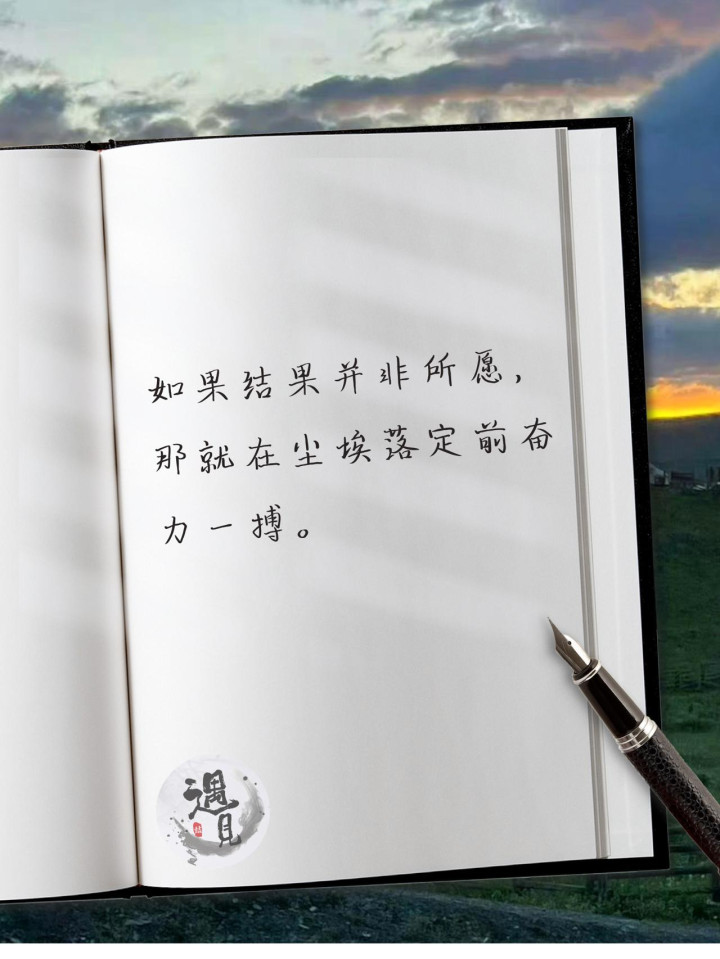 如果结果并非所愿，
那就在尘埃落定前奋
力一搏。
遇见